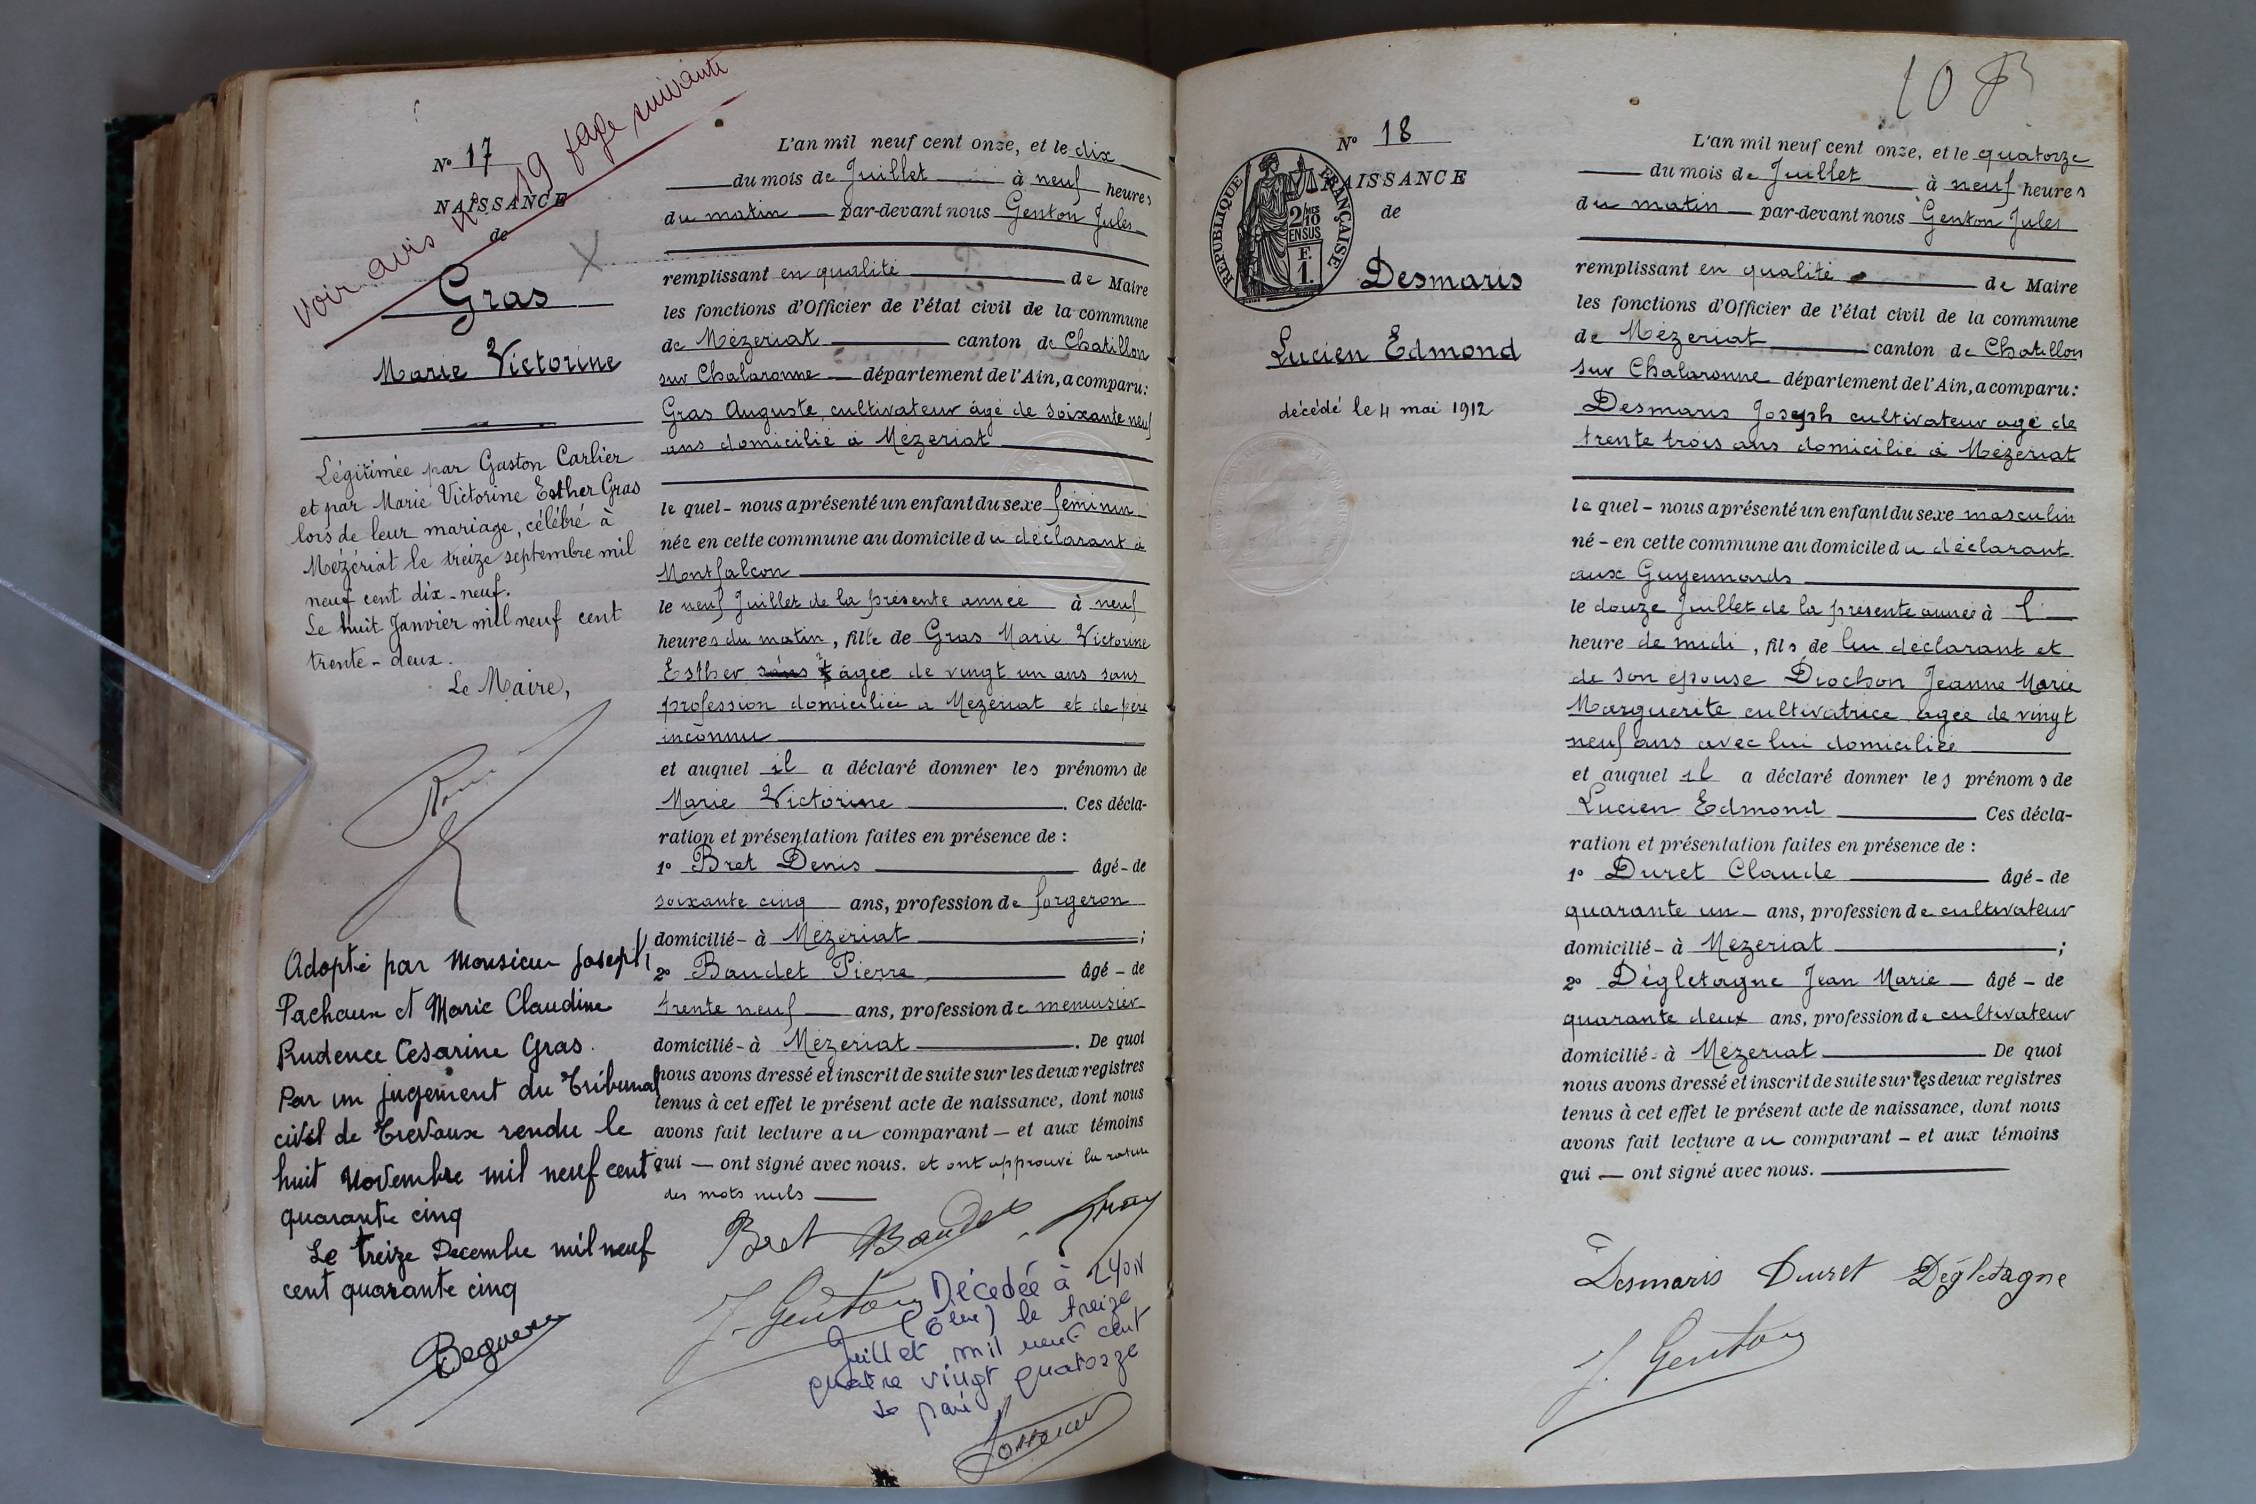 voir avis N° 19 page suivante
N° 17
NAISSANCE
de
Gras
Marie Victorine
Légitimée par Gaston Carlier
et par Marie Victorine Esther Gras
lors de leur mariage, célébré à
Mézériat le treize septembre mil
neuf cent dix-neuf.
Le huit Janvier mil neuf cent
trente-deux.
Le Maire,
Adopté par Monsieur Joseph
Pachoux et Marie Claudine
Prudence Cesarine Gras.
Par un jugement du Tribunal
civil de Trevoux rendu le
huit Novembre mil neuf cent
quarante cinq
Le treize Decembre mil neuf
cent quarante cinq
L'an mil neuf cent onze, et le dix
du mois de Juillet à neuf heures
du matin par-devant nous Genton Jules
remplissant en qualité de Maire
les fonctions d'Officier de l'état civil de la commune
de Mézeriat canton de Chatillon
sur Chalaronne département de l'Ain, a comparu:
Gras Auguste cultivateur âgé de soixante neuf
ans domicilié à Mézeriat
le quel - nous a présenté un enfant du sexe féminin
née en cette commune au domicile du déclarant à
Montfalcon
le neuf Juillet de la présente année à neuf
heures du matin, fille de Gras Marie Victorine
Esther sans âgée de vingt un ans sans
profession domiciliée à Mezeriat et de père
inconnu
et auquel il a déclaré donner les prénoms de
Marie Victorine . Ces décla-
ration et présentation faites en présence de :
1° Bret Denis âgé - de
soixante cinq ans, profession de forgeron
domicilié - à Mézeriat ;
2° Baudet Pierre âgé - de
trente neuf ans, profession de menuisier
domicilié - à Mézeriat . De quoi
nous avons dressé et inscrit de suite sur les deux registres
tenus à cet effet le présent acte de naissance, dont nous
avons fait lecture au comparant - et aux témoins
qui — ont signé avec nous. et ont approuvé la rature
des mots nuls
Bret Baudet Gras
J. Genton
Décédée à LYON
(6ème) le treize
Juillet mil neuf cent
quatre vingt quatorze
10
N° 18
RÉPUBLIQUE FRANÇAISE
2/10 MES
EN SUS
F.
1.
NAISSANCE
de
Desmaris
Lucien Edmond
décédé le 4 mai 1912
L'an mil neuf cent onze, et le quatorze
du mois de Juillet à neuf heures
du matin par-devant nous Genton Jules
remplissant en qualité de Maire
les fonctions d'Officier de l'état civil de la commune
de Mézeriat canton de Chatillon
sur Chalaronne département de l'Ain, a comparu:
Desmaris Joseph cultivateur agé de
trente trois ans domicilié à Mézériat
le quel - nous a présenté un enfant du sexe masculin
né - en cette commune au domicile du déclarant
aux Guyennards
le douze Juillet de la présente année à 1
heure de midi, fils de lui déclarant et
de son épouse Diochon Jeanne Marie
Marguerite cultivatrice agée de vingt
neuf ans avec lui domiciliée
et auquel il a déclaré donner les prénoms de
Lucien Edmond Ces décla-
ration et présentation faites en présence de :
1° Duret Claude âgé - de
quarante un - ans, profession de cultivateur
domicilié - à Mézeriat ;
2° Dégletagne Jean Marie âgé - de
quarante deux ans, profession de cultivateur
domicilié - à Mézeriat De quoi
nous avons dressé et inscrit de suite sur les deux registres
tenus à cet effet le présent acte de naissance, dont nous
avons fait lecture au comparant - et aux témoins
qui — ont signé avec nous.
Desmaris Duret Dégletagne
J. Genton